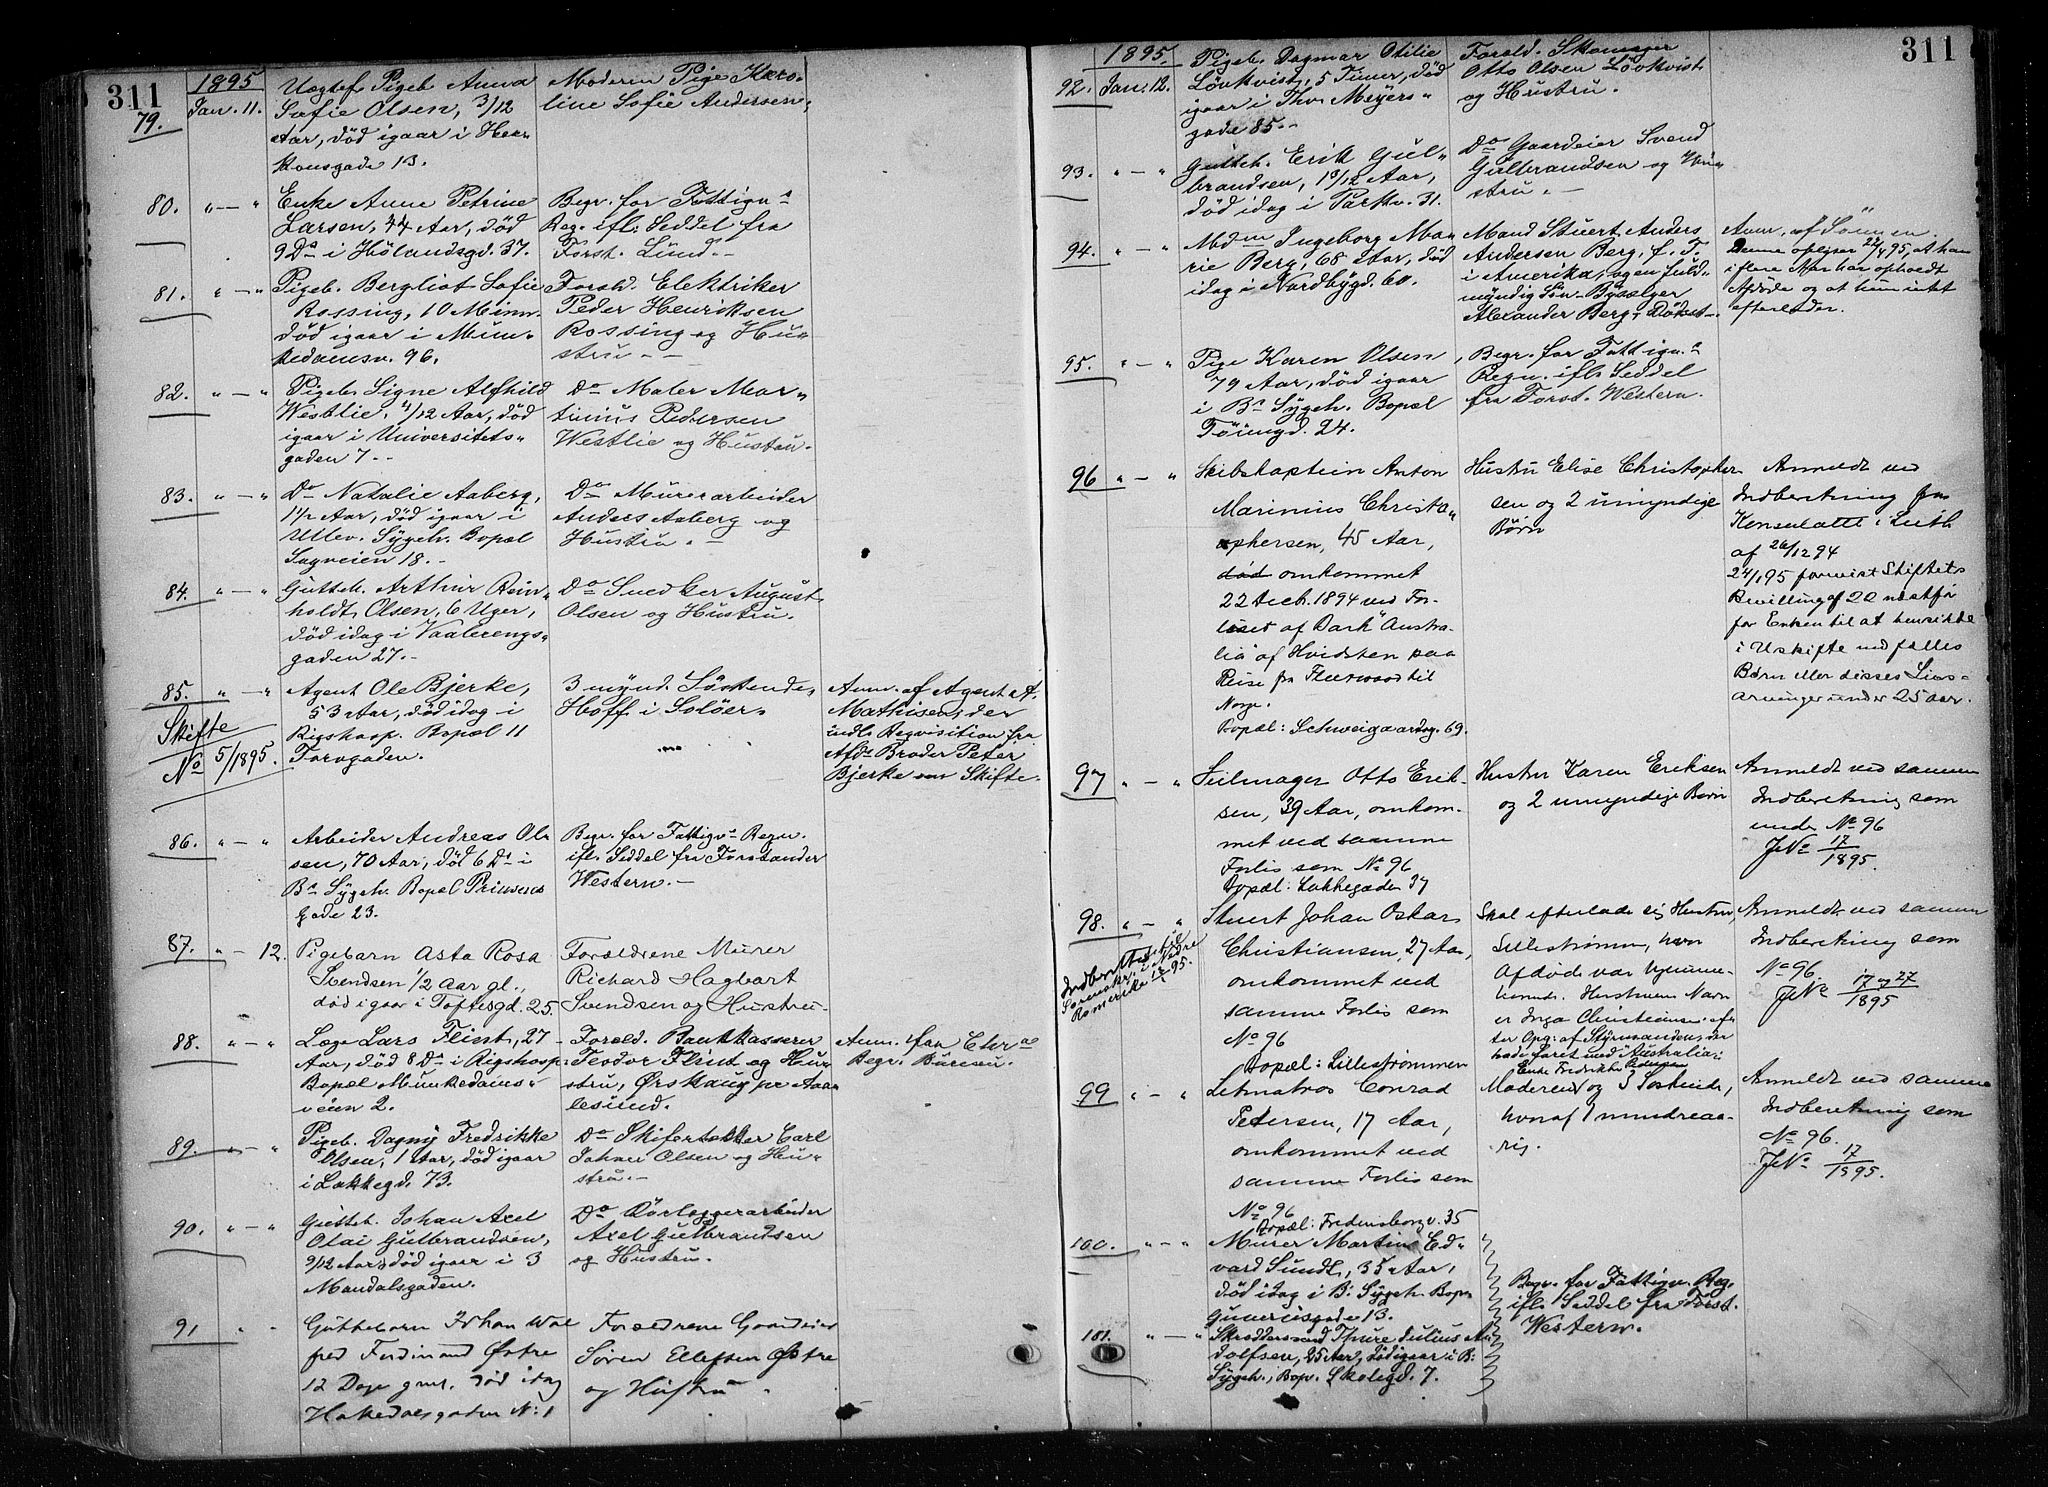 311
1895
79.
Jan. 11.
Uegtef. Pigeb. Anna
Sofie Olsen, 3/12
Aar, død igaar i Haa-
konsgade 13.
Moderen Pige Karo-
line Sofie Andersen,
80. " — "
Enke Anne Petrine
Larsen, 44 Aar, død
9 Ds i Hölandsgd. 37.
Begr. for Fattigv.s
Reg. ifl. Seddel fra
Forst. Lund. -
81. " — "
Pigeb. Bergliot Sofie
Rossing, 10 Minn.
død igaar i Mun-
kedamsv. 96.
Foræld. Elektriker
Peder Henriksen
Rossing og Hu-
stru. -
82. " — "
Pigeb. Signe Alfhild
Westlie, 4/12 Aar, død
igaar i Universitets-
gaden 7. -
Do Maler Mar-
tinius Pedersen
Westlie og Hustru.
83. " — "
Do Natalie Aaberg,
1 1/2 Aar, død igaar i
Ullev. Sygeh. Bopæl
Sagveien 18. -
Do Murerarbeider
Anders Aaberg og
Hustru. -
84. " — "
Gutteb. Arthur Rein-
holdt Olsen, 6 Uger,
død idag i Vaalerengs-
gaden 27. -
Do Snedker August
Olsen og Hustru.
85. " — "
Skifte
No 5/1895.
Agent Ole Bjerke,
53 Aar, død idag i
Rigshosp. Bopæl 11
Torvgaden.
3 mynd. Söskende,
Hoff i Solöer.
Anm. af Agent A.
Mathisen, der
indl. Reqvisition fra
Afds Broder Peter
Bjerke om Skifte.
86. " — "
Arbeider Andreas Ol-
sen, 70 Aar, død 6 Ds i
Bs Sygeh. Bopæl Prinsens
Gade 23.
Begr. for Fattigv.s Regn.
ifl. Seddel fra Forstander
Western. -
87. " — 12.
Pigebarn Asta Rosa
Svendsen 1/2 Aar gl.,
død igaar i Toftesgd. 25.
Forældrene Murer
Richard Hagbart
Svendsen og Hustru.
88. " — "
Læge Lars Flint, 27
Aar, død 8 Ds i Rigshosp.
Bopæl Munkedams-
veien 2.
Foræld. Bankkasserer
Teodor Flint og Hu-
stru, Ørskaug pr Aaa-
lesund.
Anm. fra Chr.as
Begr. Büreau.
89. " — "
Pigeb. Dagny Fredrikke
Olsen, 1 Aar, død igaar
i Lakkegd. 73.
Do Skifertækker Carl
Johan Olsen og Hu-
stru. -
90. " — "
Gutteb. Johan Axel
Olai Gulbrandsen,
9/12 Aar, død igaar i 3
Mandalsgaden.
Do Rörlæggerarbeider
Axel Gulbrandsen
og Hustru.
91 " "
Guttebarn Johan Wal
fred Ferdinand Østre
12 Dage gml. død idag
Hakedalsgaden No 1
Forældrene Gaardeier
Søren Ellefsen Østre
og Hustru.
311
1895.
92. Jan. 12.
Pigeb. Dagmar Otilie
Lövkvist, 5 Timer, død
igaar i Thv. Meyers-
gade 85. -
Foræld. Skomager
Otto Olsen Lövkvist
og Hustru.
93. " — "
Gutteb. Erik Gul-
brandsen, 10/12 Aar,
død idag i Parkv. 31.
Do Gaardeier Svend
Gulbrandsen og Hu-
stru. -
94. " — "
Mdm Ingeborg Ma-
rie Berg, 68 Aar, død
idag i Nordbygd. 60.
Mand Stuert Anders
Andersen Berg, f. T.
i Amerika, og en fuld-
myndig Søn Bysælger
Alexander Berg, Rödset-
Anm. af Sönnen.
Denne oplyser 22/1 95, at han
i flere Aar har opholdt
Afdøde og at hun intet
efterlader.
95. " — "
Pige Karen Olsen
79 Aar, død igaar
i Bs Sygeh. Bopæl
Töiengd. 24.
Begr. for Fattigv.s
Regn. ifl. Seddel
fra Forst. Western.
96 " — "
Skibskaptein Anton
Marinius Christo-
phersen, 45 Aar,
død omkommet
22 Decb. 1894 ved For-
liset af Bark "Austra-
lia" af Hvidsten paa
Reise fra Fleetwood til
Norge.
Bopæl: Schweigaardsg. 69.
Hustru Elise Christopher
sen og 2 umyndige
Børn
Anmeldt ved
Indberetning fra
Konsulatet i Leith
af 26/12 94
24/1 95 forevist Stiftets
Bevilling af 22 næstfør
for Enken til at hensidde
i Uskifte med fælles
Børn eller disses Livs-
arvinger under 25 aar.
97 " — "
Seilmager Otto Erik-
sen, 39 Aar, omkom-
met ved samme
Forlis som No 96
Bopæl: Lakkegaden 37
Hustru Karen Eriksen
og 2 umyndige Børn
Anmeldt ved samme
Indberetning som
under No 96
JNo 17/1895.
98. " — "
Indberettet til
Sorenskr. i Nedre
Romerike 12/2 95.
Stuert Johan Oskar
Christiansen, 27 Aar,
omkommet ved
samme Forlis som
No 96
Bopæl: Lillestrømmen
Skal efterlade sig Hustru,
Lillestrømmen, hvor
Afdøde var hjemme-
hørende. Hustruens Navn
er Inga Christiansen efter
Opg: af Styrmanden, der
havde faret med "Australia".
Anmeldt ved samme
Indberetning som
No 96.
JNo 17 og 27/1895
99 " — "
Letmatros Conrad
Petersen, 17 Aar,
omkommet ved
samme Forlis som
No 96
Bopæl: Fredensborgv. 35
Enke Fredrikke Pedersen
Moderen og 5 Søskende,
hvoraf 1 mindreaa-
rig.
Anmeldt ved samme
Indberetning som
No 96.
JNo 17/1895.
100. " — "
Murer Martin Ed-
vard Sundt, 35 Aar,
død idag i B: Sygeh. Bop.
Gunerusgade 13.
Begr. for Fattigv. Reg.
ifl. Seddel fra Forst.
Western.
101. " — "
Skræddersvend Thure Julius Au
dolfsen, 25 Aar, död igaar i B:
Sygeh., Bop. Skolegd. 7.